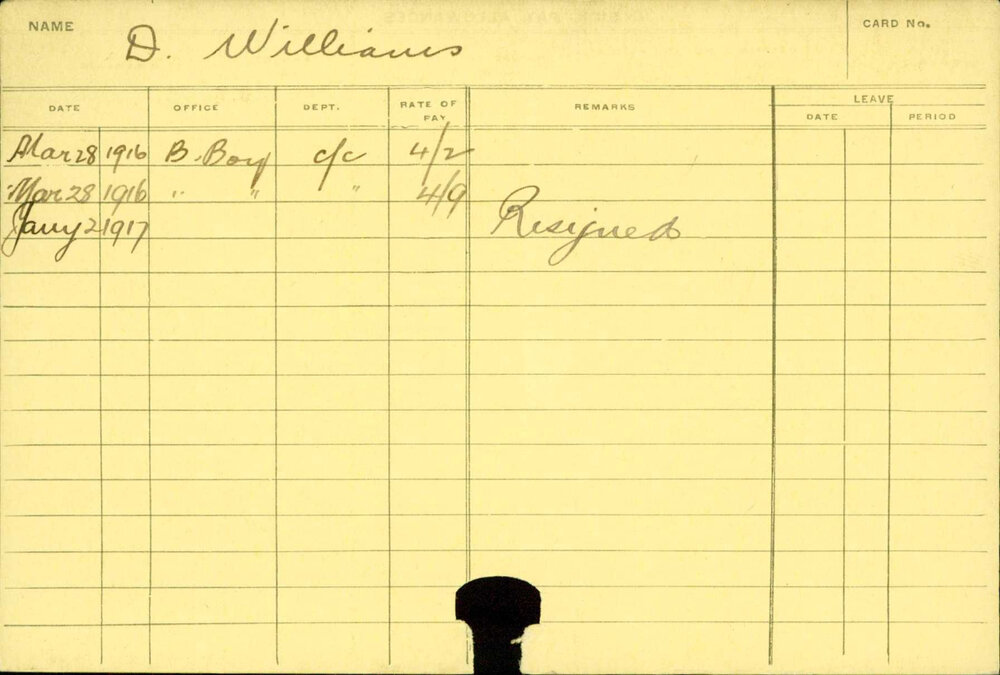 NAME D. Williams CARD No.
DATE OFFICE DEPT. RATE OF PAY REMARKS LEAVE
DATE PERIOD
Mar 28 1916 B. Boy c/c 4/2
Mar 28 1916 " " " 4/9
Jany 2 1917 Resigned